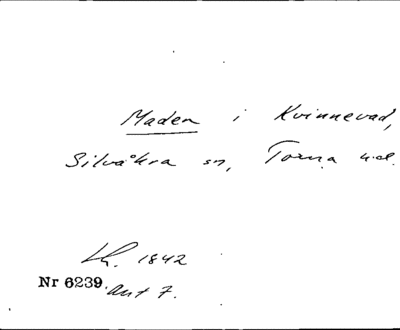 Maden i Kvinnevad,
Silvåkra sn, Torna hd.
Lh. 1842
Nr 6239. Ant 7.